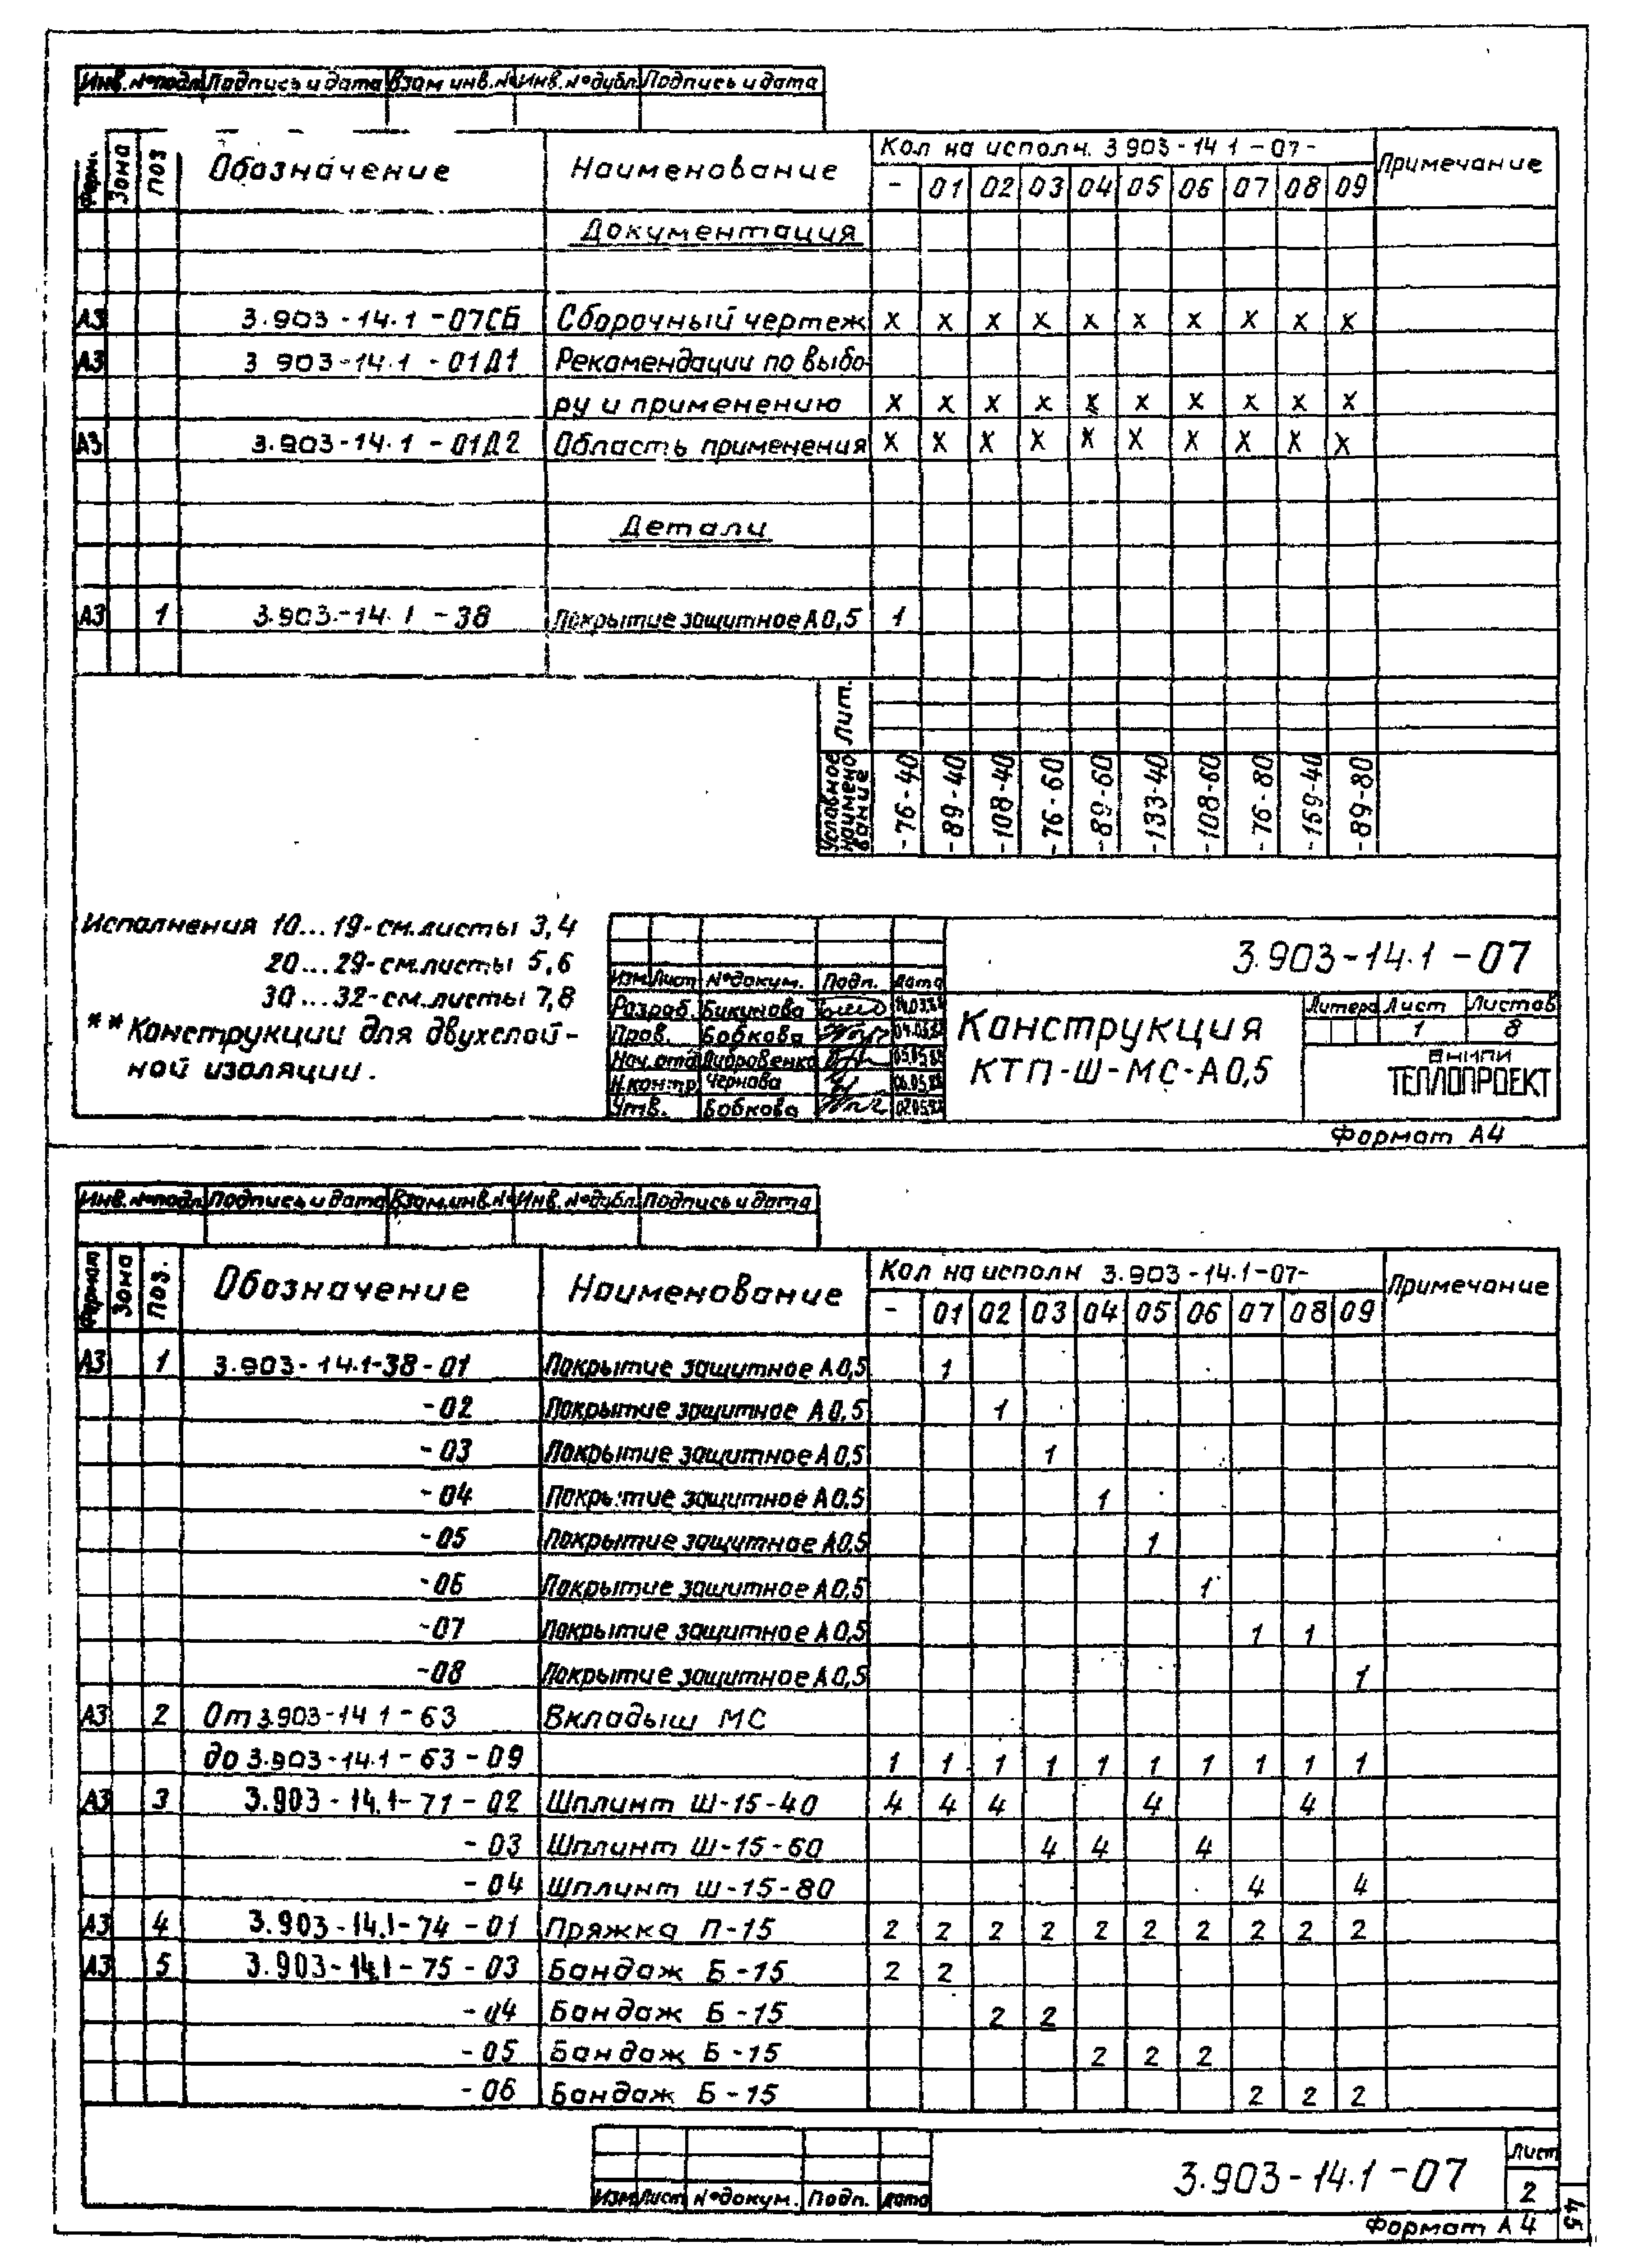 Инв. № подл Подпись и дата Взам инв. № Инв. № дубл. Подпись и дата
Форм. Зона Поз Обозначение Наименование Кол на исполн. 3 903-14 1-07- Примечание
- 01 02 03 04 05 06 07 08 09
Документация
А3 3.903-14.1-07СБ Сборочный чертеж х х х х х х х х х х
А3 3 903-14.1-01Д1 Рекомендации по выбо-
ру и применению х х х х х х х х х х
А3 3.903-14.1-01Д2 Область применения х х х х х х х х х х
Детали
А3 1 3.903-14.1-38 Покрытие защитное А0,5 1
Лит.
Условное наимено вание -76-40 -89-40 -108-40 -76-60 -89-60 -133-40 -108-60 -76-80 -159-40 -89-80
Исполнения 10...19-см.листы 3,4
20...29-см.листы 5,6
30...32-см.листы 7,8
**Конструкции для двухслой-
ной изоляции.
3.903-14.1-07
Изм. Лист № докум. Подп. Дата
Разраб. Бикунова
Пров. Бобкова
Нач. отд
Н.контр Чернова
Утв. Бобкова
Конструкция
КТП-Ш-МС-А0,5
Литера Лист Листов
1 8
ВНИПИ
ТЕПЛОПРОЕКТ
Формат А4
Инв. № подл Подпись и дата Взам. инв. № Инв. № дубл. Подпись и дата
Формат Зона Поз. Обозначение Наименование Кол на исполн 3.903-14.1-07- Примечание
- 01 02 03 04 05 06 07 08 09
А3 1 3.903-14.1-38-01 Покрытие защитное А0,5 1
-02 Покрытие защитное А0,5 1
-03 Покрытие защитное А0,5 1
-04 Покрытие защитное А0,5 1
-05 Покрытие защитное А0,5 1
-06 Покрытие защитное А0,5 1
-07 Покрытие защитное А0,5 1 1
-08 Покрытие защитное А0,5 1
А3 2 От 3.903-14 1-63 Вкладыш МС
до 3.903-14.1-63-09 1 1 1 1 1 1 1 1 1 1
А3 3 3.903-14.1-71-02 Шплинт Ш-15-40 4 4 4 4 4
-03 Шплинт Ш-15-60 4 4 4
-04 Шплинт Ш-15-80 4 4
А3 4 3.903-14.1-74-01 Пряжка П-15 2 2 2 2 2 2 2 2 2 2
А3 5 3.903-14.1-75-03 Бандаж Б-15 2 2
-04 Бандаж Б-15 2 2
-05 Бандаж Б-15 2 2 2
-06 Бандаж Б-15 2 2 2
Изм Лист № докум. Подп. Дата
3.903-14.1-07
Лист
2
Формат А4
45